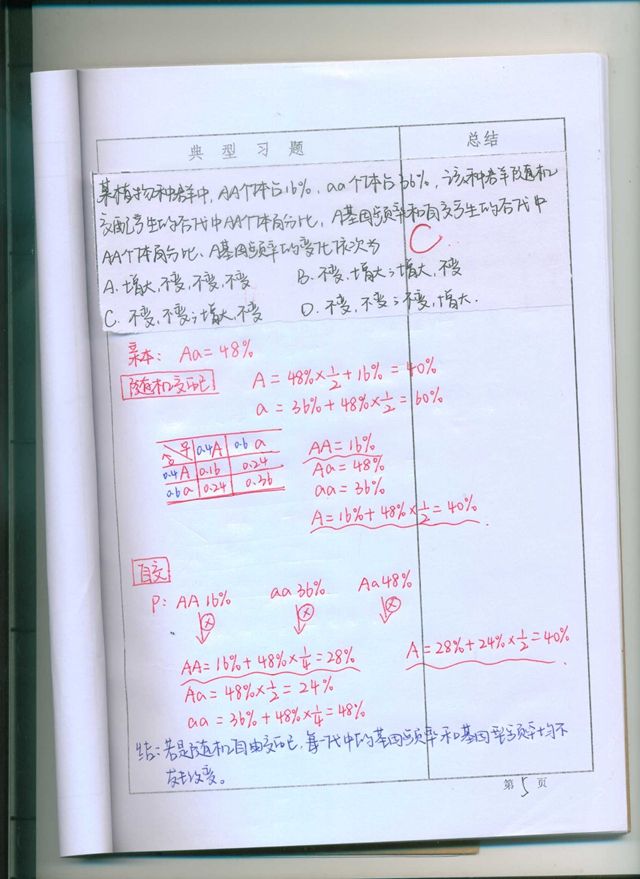 典型习题
总结
某植物种群中，AA个体占16%，aa个体占36%，该种群随机
交配产生的后代中AA个体百分比、A基因频率和自交产生的后代中
AA个体百分比、A基因频率的变化依次为
C
A. 增大，不变；不变，不变
B. 不变，增大；增大，不变
C. 不变，不变；增大，不变
D. 不变，不变；不变，增大．
亲本： Aa=48%
随机交配
A=48%×1/2+16%=40%
a=36%+48%×1/2=60%
♀ 0.4A 0.6 a
0.4A 0.16 0.24
0.6 a 0.24 0.36
AA=16%
Aa=48%
aa=36%
A=16%+48%×1/2=40%
自交
P: AA 16% aa 36% Aa 48%
⊗ ⊗ ⊗
AA=16%+48%×1/4=28%
A=28%+24%×1/2=40%
Aa=48%×1/2=24%
aa=36%+48%×1/4=48%
结：若是随机自由交配，每一代中的基因频率和基因型频率均不
发生改变。
第 5 页